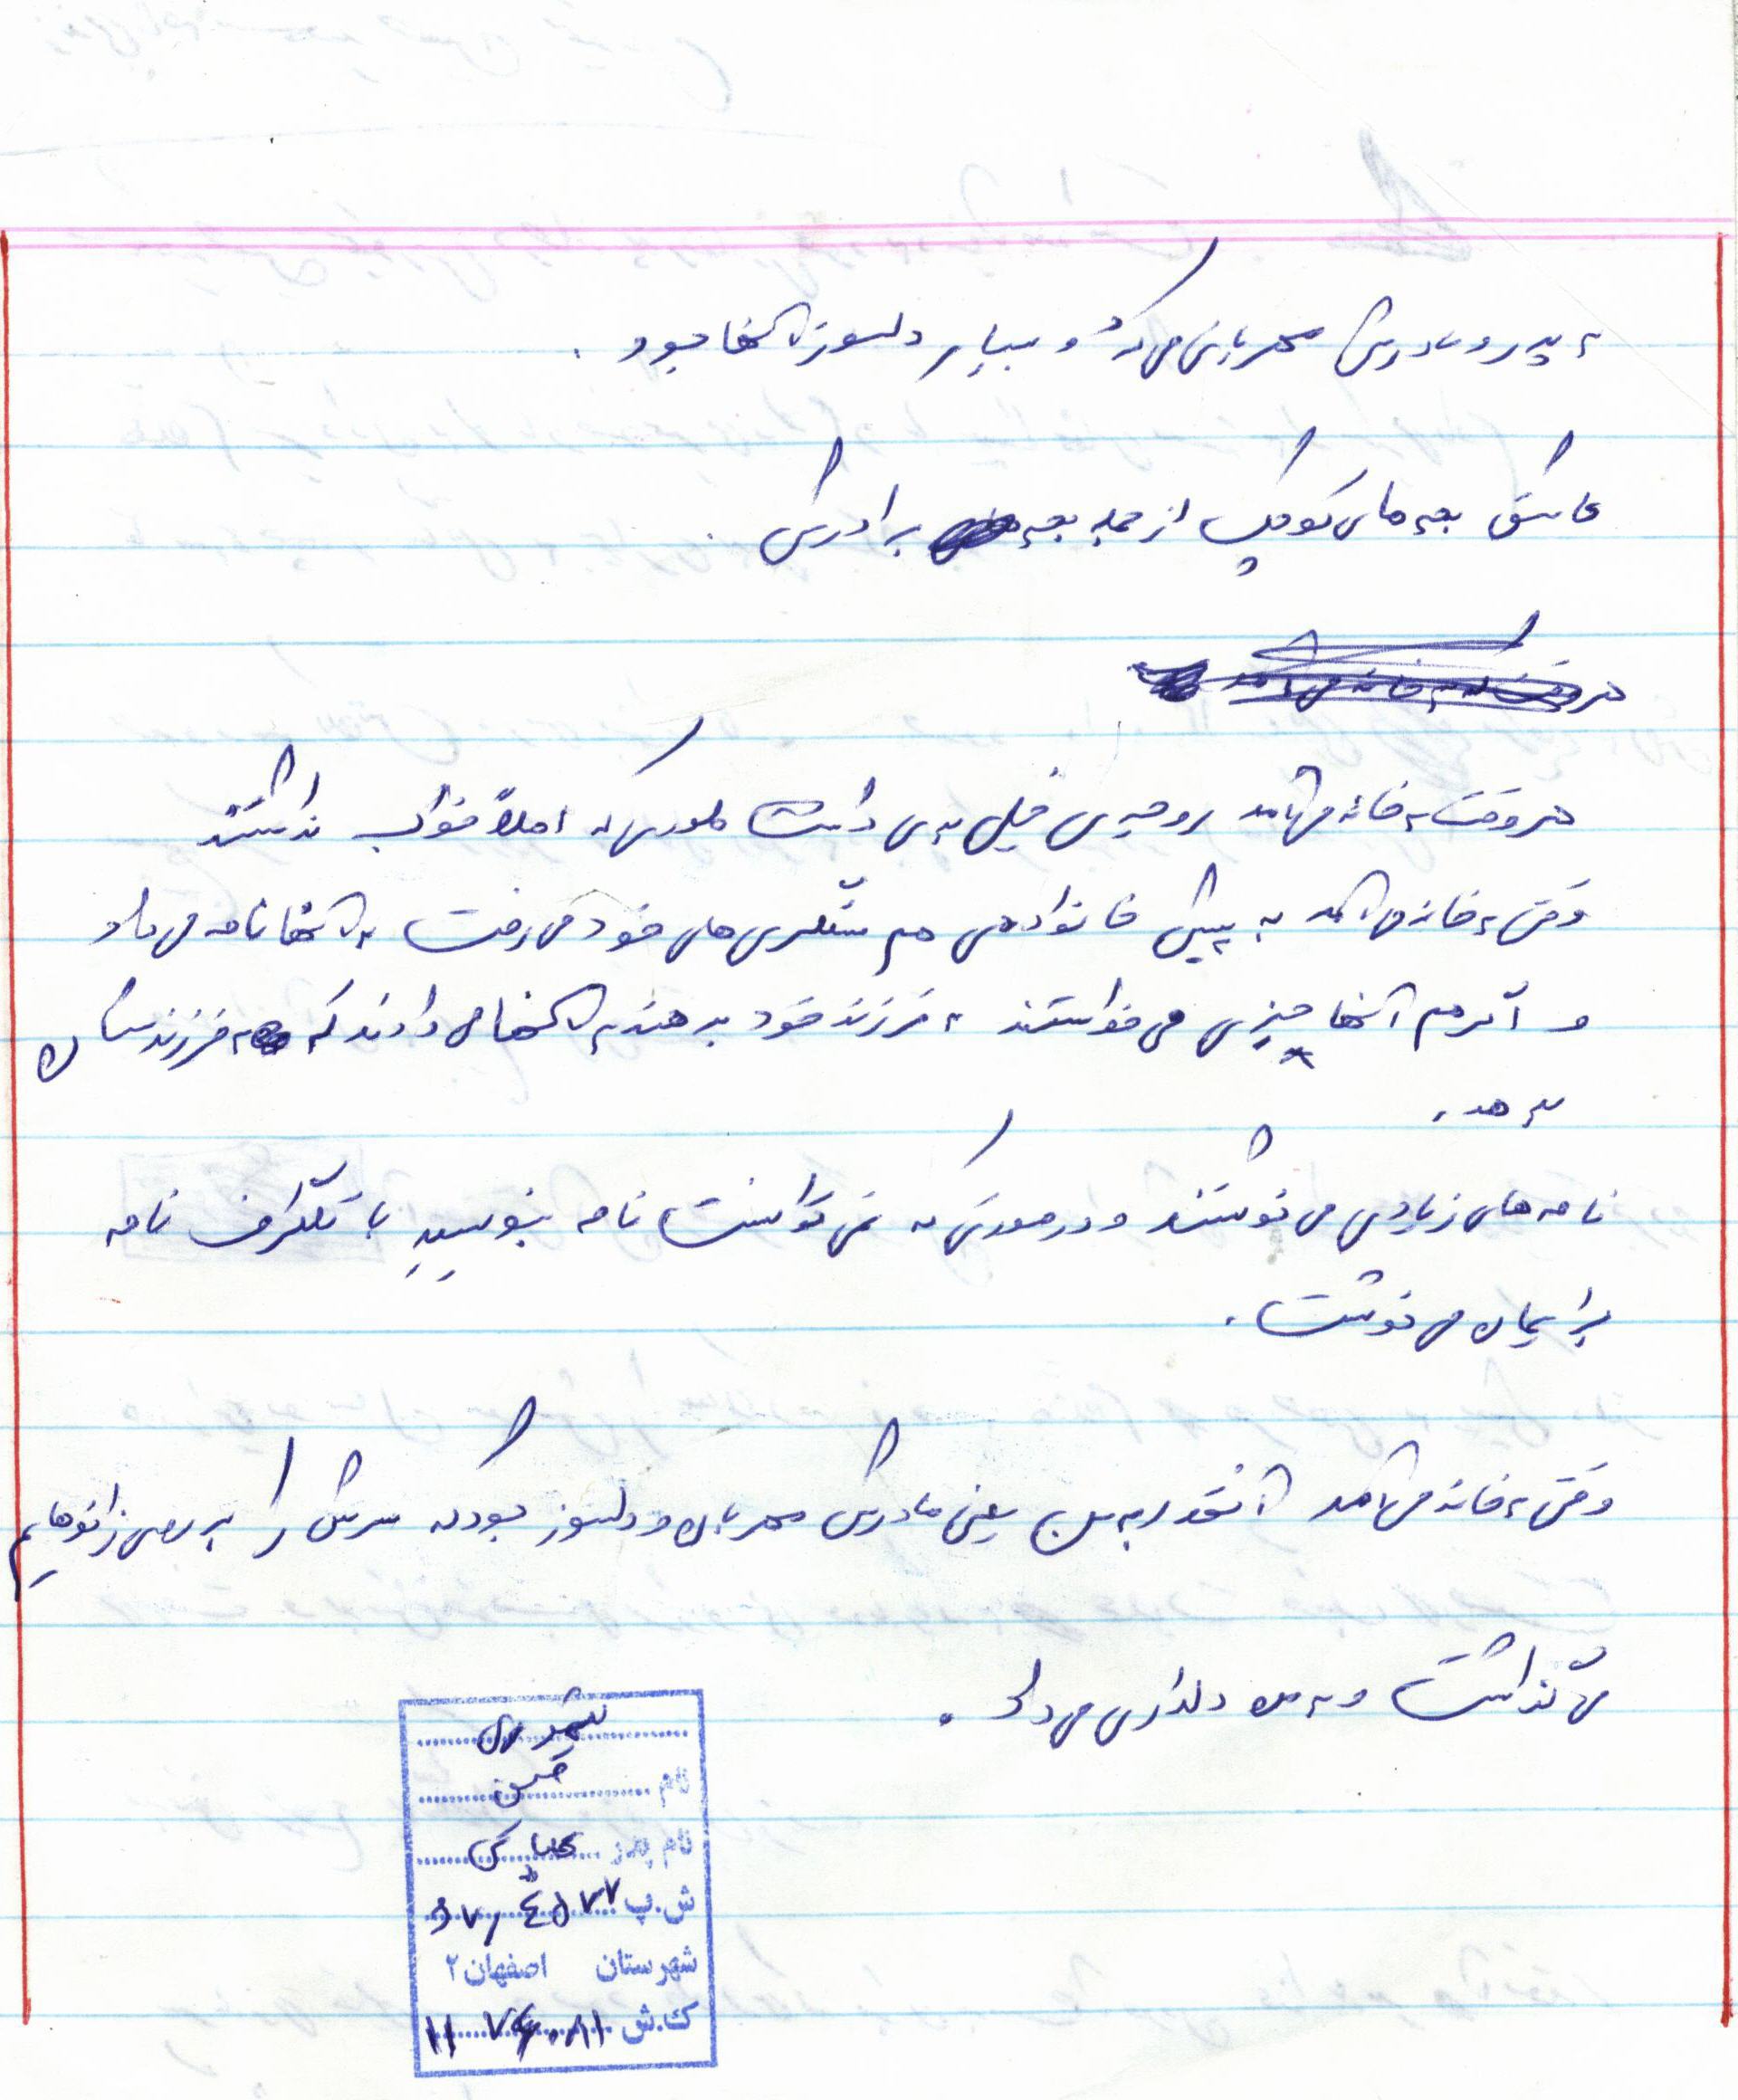 به پدر و مادرش مهربانی می‌کرد و بسیار دلسوز آنها بود .
عاشق بچه‌های کوچک از جمله بچه برادرش .
هر وقت به خانه می‌آمد
هر وقت به خانه می‌آمد روحیه‌ی خیلی داشت طوری که اصلاً خواب نداشتند
وقتی به خانه می‌آمد به پیش خانواده‌ی هم سنگری‌های خود می‌رفت به آنها نامه می‌داد
و اگر هم آنها چیزی می‌خواستند به فرزند خود بدهند به آنها می‌دادند که به فرزندشان
بدهد .
نامه‌های زیادی می‌نوشتند و در صورتی که نمی‌توانست نامه بنویسد با تلگراف نامه
برایمان می‌نوشت .
وقتی به خانه می‌آمد آنقدر به من یعنی مادرش مهربان و دلسوز بود که سرش را بر روی زانوهایم
می‌گذاشت و به من دلداری می‌داد .
نام
نام پدر
ش.پ ۴۵۷۷
شهرستان اصفهان ۲
ک.ش ۱۱